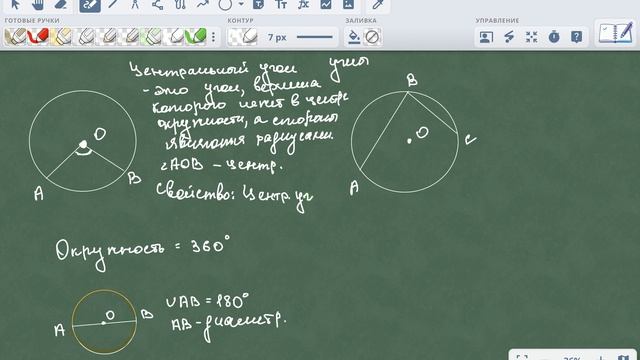 ГОТОВЫЕ РУЧКИ
КОНТУР
ЗАЛИВКА
УПРАВЛЕНИЕ
7 px
Центральный угол
- это угол, вершина
которого лежит в центре
окружности, а стороны
являются радиусами.
∠AOB - центр.
Свойство: Центр. уг
O
A
B
B
O
A
C
Окружность = 360°
A
O
B
∪AB = 180°
AB - диаметр.
36%